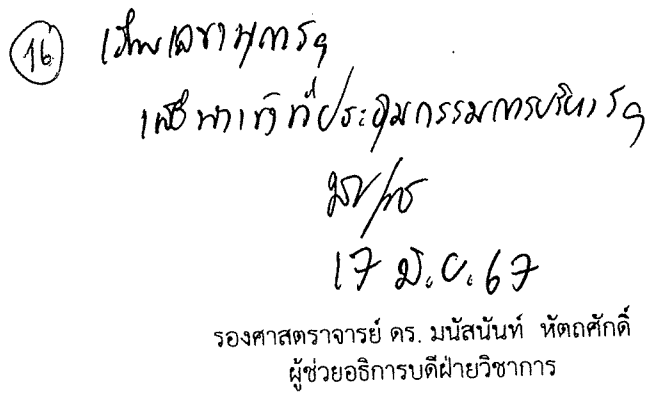 16 เรียน เลขานุการฯ
เพื่อนำเข้าที่ประชุมกรรมการบริหารฯ
17 มิ.ย. 67
รองศาสตราจารย์ ดร. มนัสนันท์ หัตถศักดิ์
ผู้ช่วยอธิการบดีฝ่ายวิชาการ